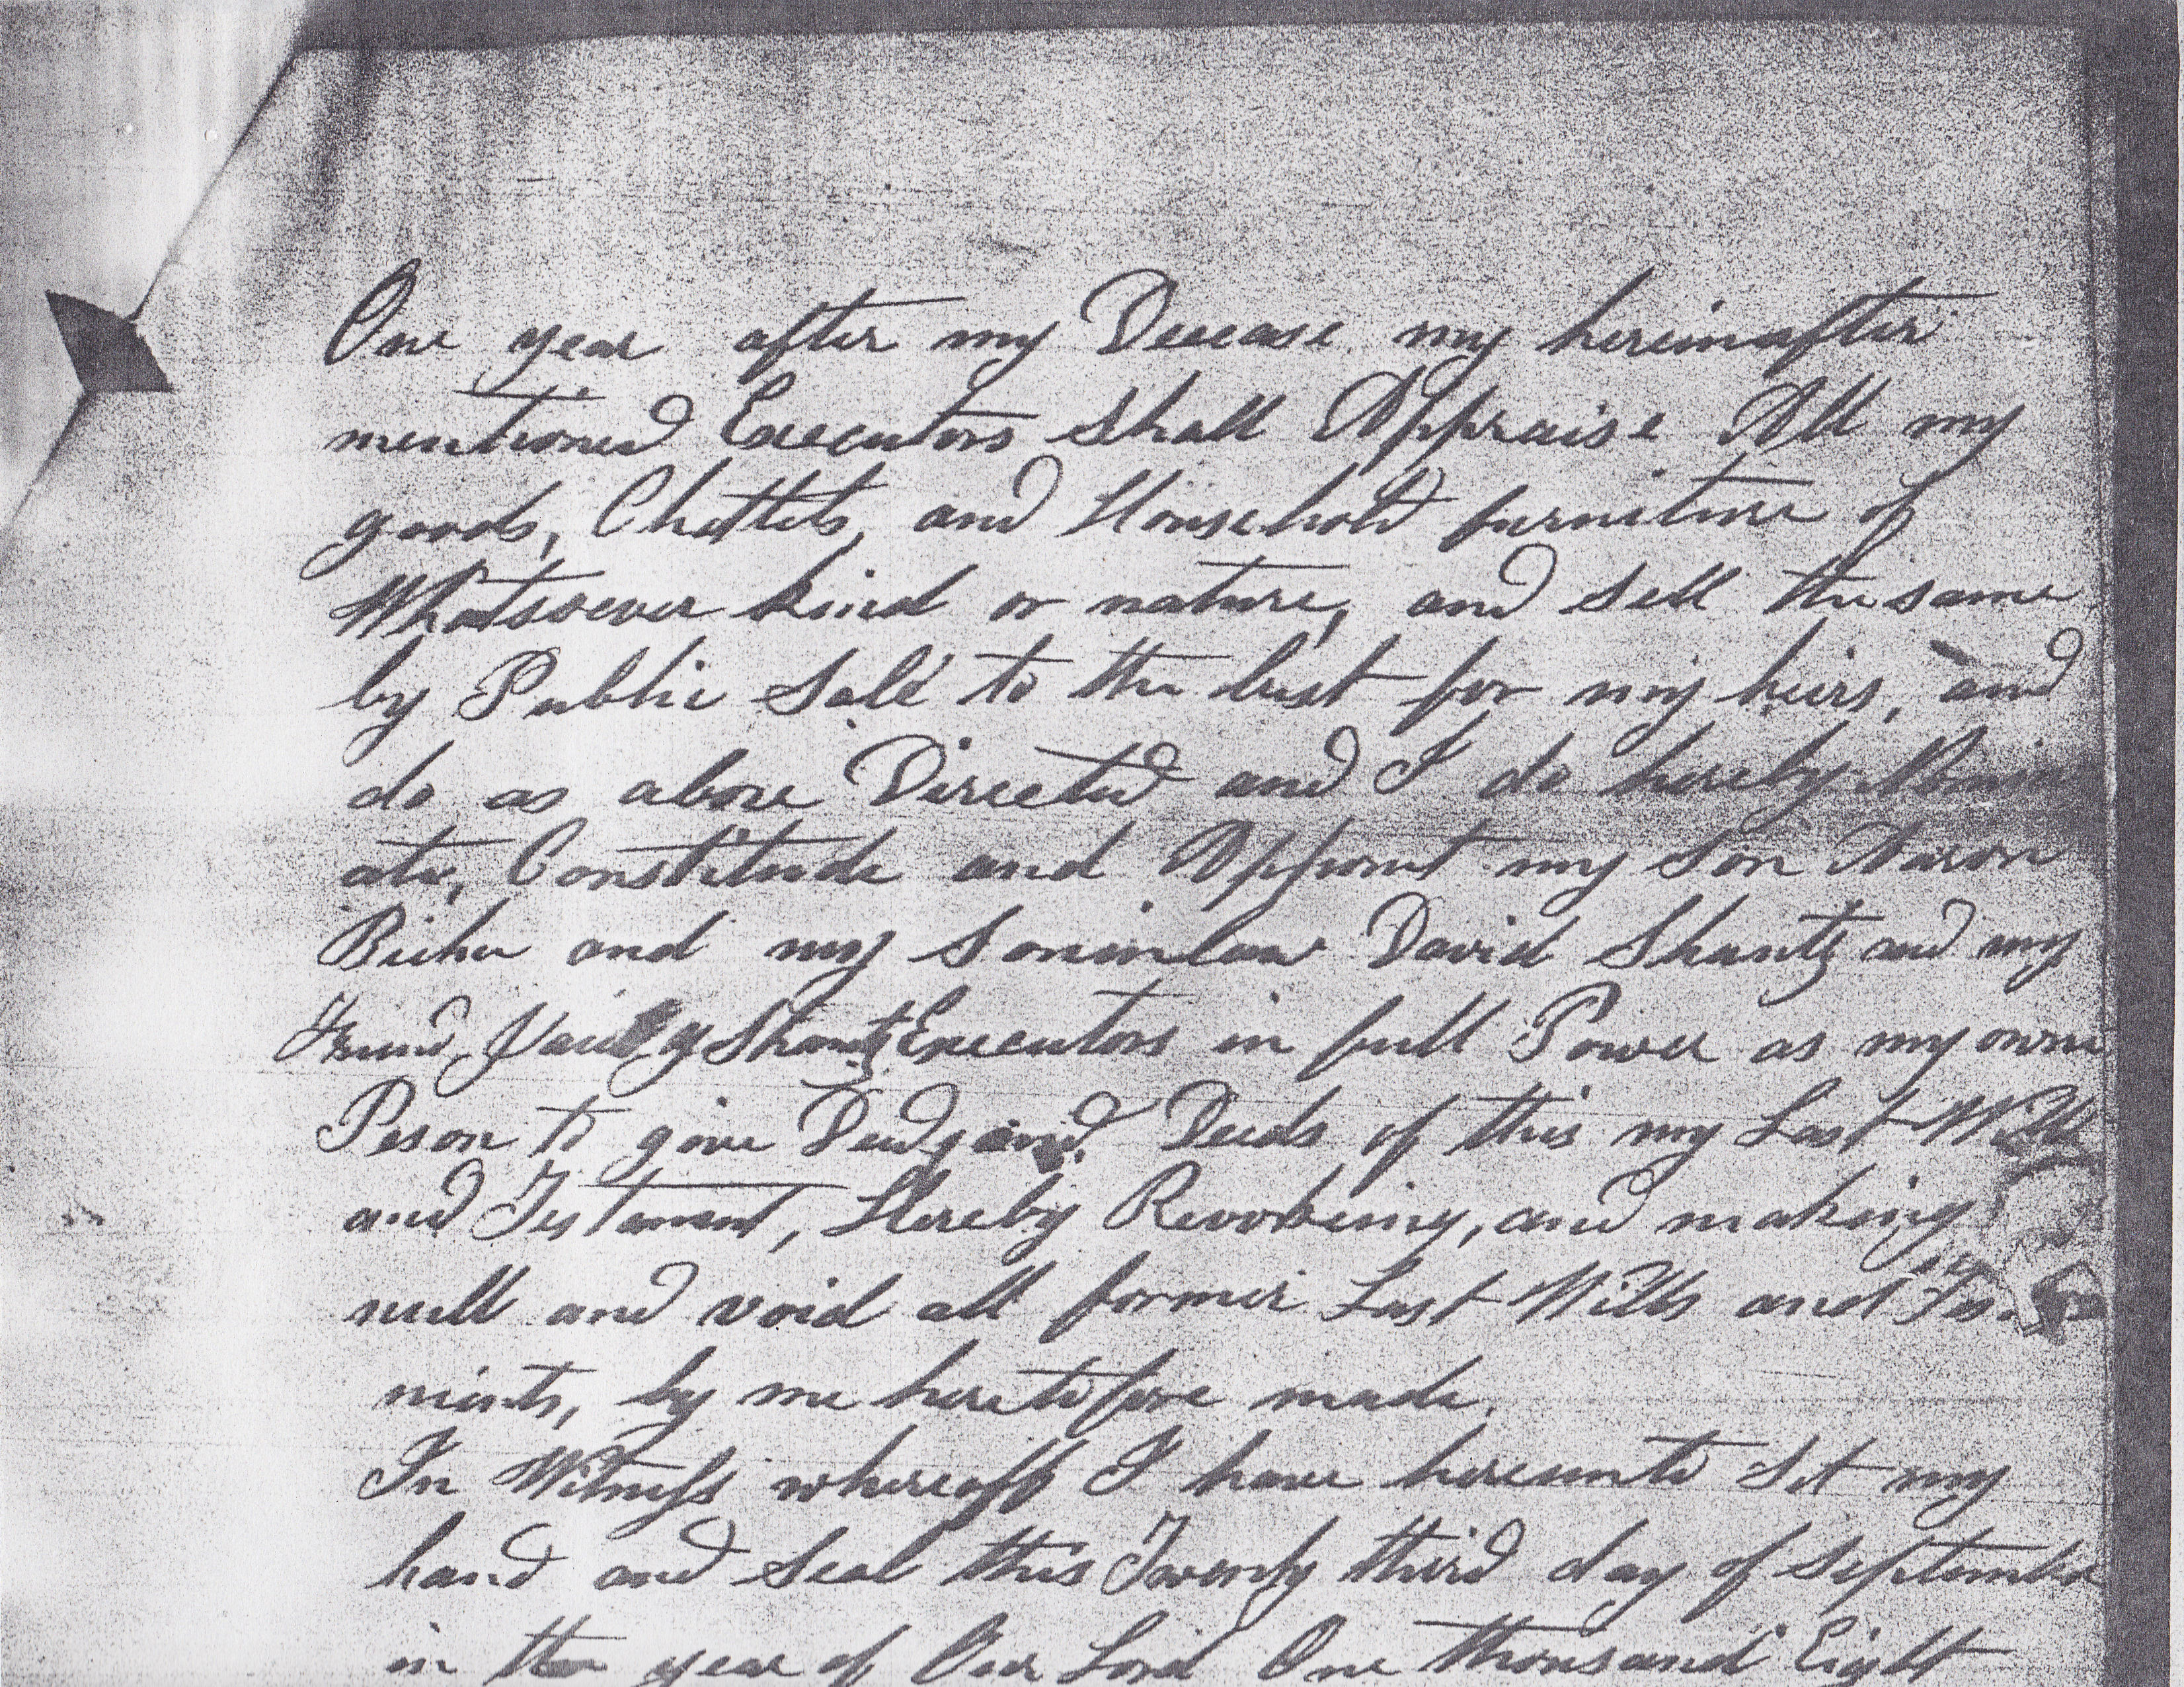 One year after my Decease my hereinafter
mentioned Executors shall Appraise All my
goods, Chattels, and Household furniture of
Whatsoever kind or nature, and sell the same
by Public Sale to the best for my heirs, and
do as above Directed and I do hereby Nomin
ate, Constitude and Appoint my Son Aaron
Biehn and my Soninlaw David Shantz and my
Friend Shantz Executors in full Power as my own
Peson to give and Deeds of this my Last Will
and Testament, Hereby Revokeing, and making
null and void all former Last Wills and
ments, by me heretofore made.
In Witness whereoff I have hereunto Set my
hand and Seal this Twenty third day of September
in the year of Our Lord One thousand Eight